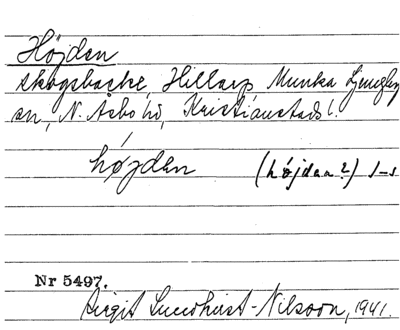 Höjden
skogsbacke, Hillarp Munka Ljungby
sn, N. Åsbo hd, Kristianstads l.
højden (højdan?) s-s
Nr 5497.
Birgit Lundkvist-Nilsson, 1941.